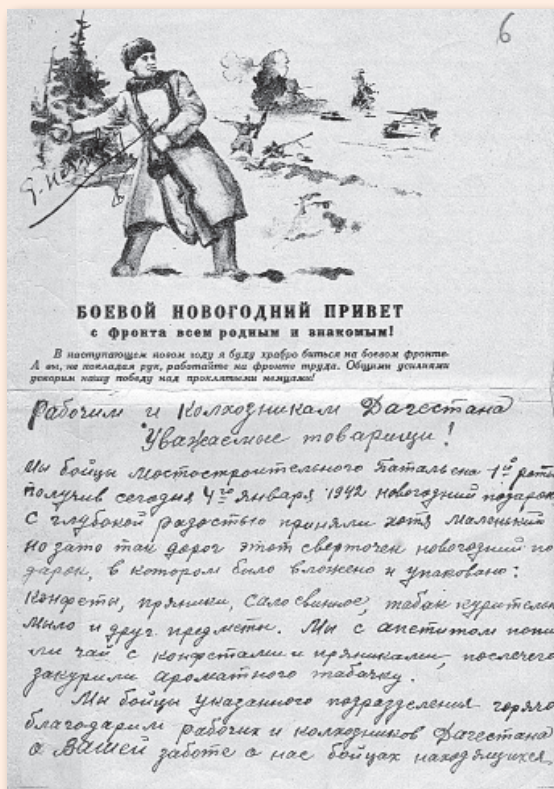 6
БОЕВОЙ НОВОГОДНИЙ ПРИВЕТ
с фронта всем родным и знакомым!
В наступающем новом году я буду храбро биться на боевом фронте.
А вы, не покладая рук, работайте на фронте труда. Общими усилиями
ускорим нашу победу над проклятыми немцами!
Рабочим и Колхозникам Дагестана
Уважаемые товарищи!
Мы бойцы Мостостроительного Батальона 1ой роты
получив сегодня 4го января 1942 новогодний подарок
с глубокой радостью приняли хотя маленький
но зато так дорог этот сверточек новогодний по
дарок, в котором было вложено и упаковано:
Конфеты, пряники, сало свиное, табак курительн
мыло и друг предметы. Мы с апетитом попи
ли чай с конфетами и пряниками, послечего
закурили ароматного табачку.
Мы бойцы указанного подразделения горячо
благодарим рабочих и колхозников Дагестана
о Вашей заботе о нас бойцах находящихся